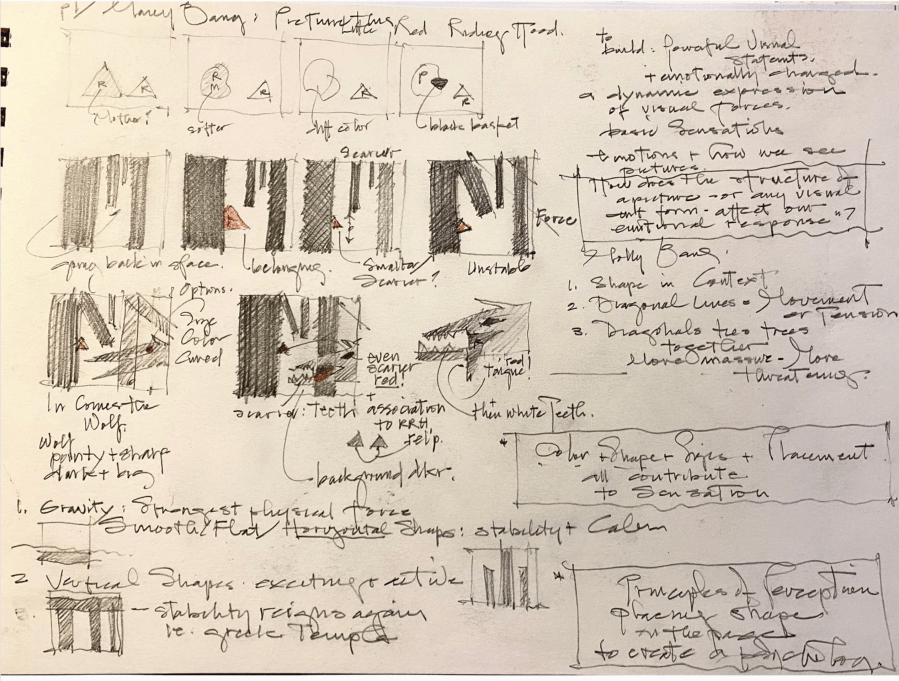 Bang: Picture This
Little Red Riding Hood.
R R
Mother?
R
M
R
softer
R
diff color
P
R
black basket
to
build: Powerful Visual
Statements.
+ emotionally charged.
a dynamic expression
of visual forces.
basic Sensations
emotions + how we see
pictures
"How does the structure of
a picture - or any visual
art form - affect our
emotional response"?
Scarier
going back in space.
belonging.
Smaller
Scarier?
Unstable
Force
Options.
Size
Color
In Comes the
Wolf.
Wolf
pointy + sharp
dark + big
scarier: Teeth
even
scarier
red!
+
association
to RRH
background dkr.
red
tongue!
then white Teeth.
Molly Bang:
1. Shape in Context
2. Diagonal Lines = Movement
or Tension
3. Diagonals ties trees
together
More massive - More
threatening.
* Color + Shape + Sizes + Placement
all contribute
to Sensation
1. Gravity: Strongest physical force
Smooth/Flat/Horizontal Shapes: stability + Calm
2 Vertical Shapes. exciting + active
- stability reigns again
ie. greek Temple
* Principles of Perception
placing shape
on the page
to create a